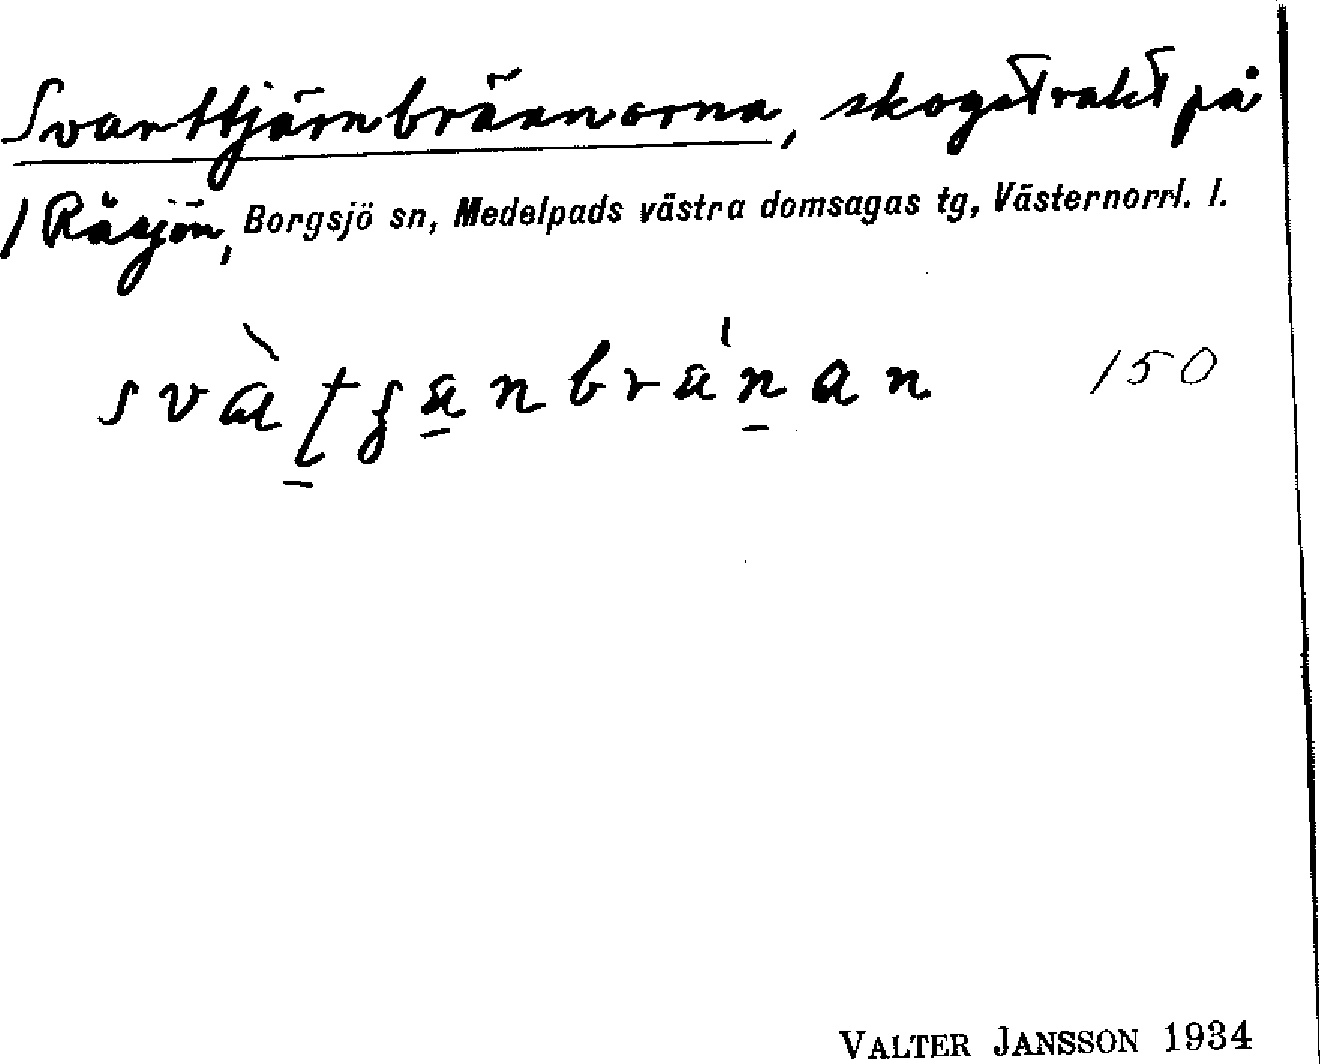 Svarttjärnbrännorna, skogstrakt på
/ Råsjön, Borgsjö sn, Medelpads västra domsagas tg, Västernorrl. l.
150
VALTER JANSSON 1934